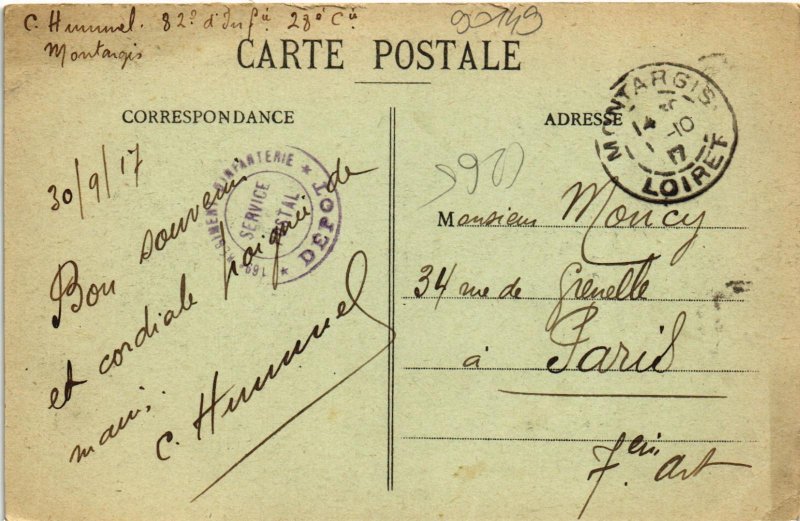 C. Hummel. 82e d'Infie 28e Cie
Montargis
90149
CARTE POSTALE
CORRESPONDANCE
ADRESSE
MONTARGIS
10
17
LOIRET
30/9/17
Bon souvenir
et cordiale poignée de
main.
C. Hummel
RÉGIMENT D'INFANTERIE ★ DÉPOT ★
SERVICE
POSTAL
Monsieur Moncy
34 rue de Grenelle
à Paris
7em art